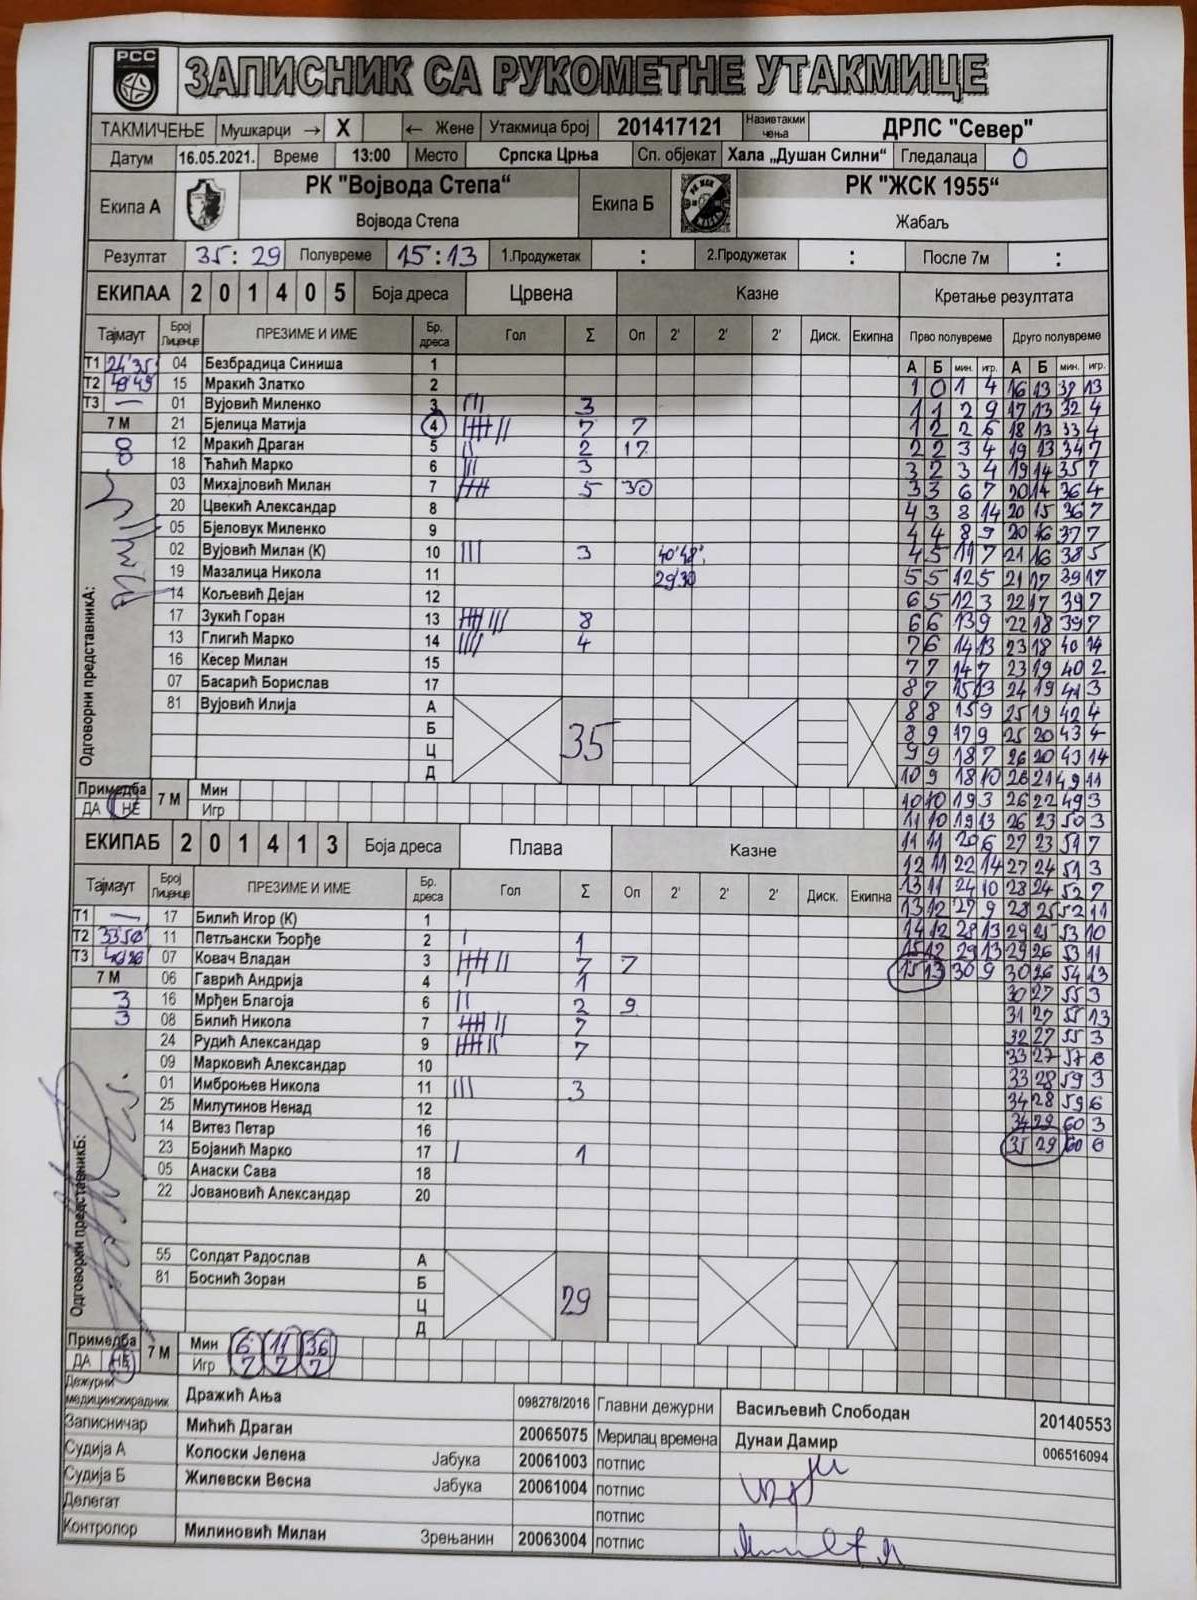 РСС
ЗАПИСНИК СА РУКОМЕТНЕ УТАКМИЦЕ
ТАКМИЧЕЊЕ Мушкарци → X ← Жене Утакмица број 201417121 Назив такмичења ДРЛС "Север"
Датум 16.05.2021. Време 13:00 Место Српска Црња Сп. објекат Хала „Душан Силни“ Гледалаца 0
Екипа А РК "Војвода Степа“ Екипа Б РК "ЖСК 1955“
Војвода Степа Жабаљ
Резултат 35:29 Полувреме 15:13 1.Продужетак : 2.Продужетак : После 7м :
ЕКИПАА 2 0 1 4 0 5 Боја дреса Црвена Казне Кретање резултата
Тајмаут Број Лиценце ПРЕЗИМЕ И ИМЕ Бр. дреса Гол Σ Оп 2' 2' 2' Диск. Екипна Прво полувреме Друго полувреме
А Б мин. игр. А Б мин. игр.
Т1 24'35 04 Безбрадица Синиша 1
Т2 49'49 15 Мракић Златко 2
Т3 — 01 Вујовић Миленко 3 3
7 М 21 Бјелица Матија 4 7 7
8 12 Мракић Драган 5 2 17
8 18 Ћаћић Марко 6 3
03 Михајловић Милан 7 5 30
20 Цвекић Александар 8
05 Бјеловук Миленко 9
02 Вујовић Милан (К) 10 3 40'48'
19 Мазалица Никола 11 29'30
14 Кољевић Дејан 12
17 Зукић Горан 13 8
13 Глигић Марко 14 4
16 Кесер Милан 15
07 Басарић Борислав 17
81 Вујовић Илија А
Б
35
Ц
Д
Одговорни представникА:
Примедба ДА НЕ 7 М Мин
Игр
1 0 1 4 16 13 32 13
1 1 2 9 17 13 32 4
1 2 2 6 18 13 33 4
2 2 3 4 19 13 34 7
3 2 3 4 19 14 35 7
3 3 6 7 20 14 36 4
4 3 8 14 20 15 36 7
4 4 8 9 20 16 37 7
4 5 11 7 21 16 38 5
5 5 12 5 21 17 39 17
6 5 12 3 22 17 39 7
6 6 13 9 22 18 39 7
7 6 14 13 23 18 40 14
7 7 14 7 23 19 40 2
8 7 15 13 24 19 41 3
8 8 15 9 25 19 42 4
8 9 17 9 25 20 43 4
9 9 18 7 26 20 43 14
10 9 18 10 26 21 49 11
10 10 19 3 26 22 49 3
11 10 19 13 26 23 50 3
11 11 20 6 27 23 51 7
12 11 22 14 27 24 51 3
13 11 24 10 28 24 52 7
13 12 27 9 28 25 52 11
14 12 28 13 29 25 53 10
15 12 29 13 29 26 53 11
15 13 30 9 30 26 54 13
30 27 55 3
31 27 55 13
32 27 55 3
33 27 57 6
33 28 59 3
34 28 59 6
34 29 60 3
35 29 60 6
ЕКИПАБ 2 0 1 4 1 3 Боја дреса Плава Казне
Тајмаут Број Лиценце ПРЕЗИМЕ И ИМЕ Бр. дреса Гол Σ Оп 2' 2' 2' Диск. Екипна
Т1 — 17 Билић Игор (К) 1
Т2 33'50' 11 Петљански Ђорђе 2 1
Т3 07 Ковач Владан 3 7 7
7 М 06 Гаврић Андрија 4 1
3 16 Мрђен Благоја 6 2 9
3 08 Билић Никола 7 7
24 Рудић Александар 9 7
09 Марковић Александар 10
01 Имброњев Никола 11 3
25 Милутинов Ненад 12
14 Витез Петар 16
23 Бојанић Марко 17 1
05 Анаски Сава 18
22 Јовановић Александар 20
55 Солдат Радослав А
81 Боснић Зоран Б
29
Ц
Д
Одговорни представникБ:
Примедба ДА НЕ 7 М Мин 6 11 36
Игр 7 7 7
Дежурни медицински радник Дражић Ања 098278/2016 Главни дежурни Васиљевић Слободан 20140553
Записничар Мићић Драган 20065075 Мерилац времена Дунаи Дамир 006516094
Судија А Колоски Јелена Јабука 20061003 потпис
Судија Б Жилевски Весна Јабука 20061004 потпис
Делегат потпис
Контролор Милиновић Милан Зрењанин 20063004 потпис